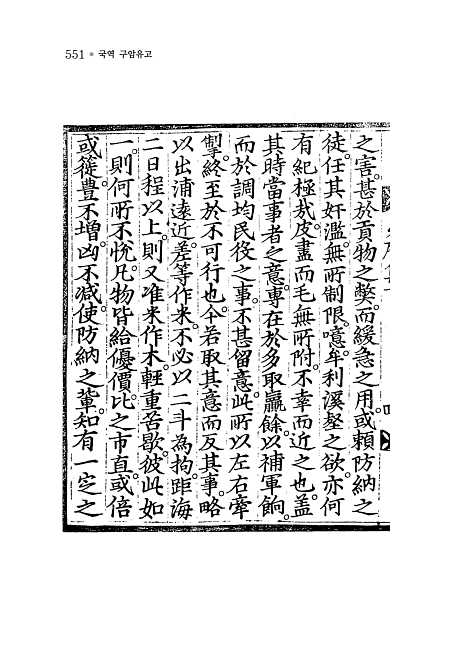 551 ● 국역 구암유고
之害。甚於貢物之獘。而緩急之用。或頼防納之
徒。任其奸濫。無所制限。噫。牟利溪壑之欲。亦何
有紀極㦲。皮盡而毛無所附。不幸而近之也。盖
其時當事者之意。專在於多取贏餘。以補軍餉。
而於調均民役之事。不甚留意。此所以左右牽
掣。終至於不可行也。今若取其意而反其事。略
以出浦遠近。差等作米。不必以二斗為拘。距海
二日程以上。則又准米作木。輕重苦歇。彼此如
一。則何所不悅。凡物皆給優價。比之市直。或倍
或蓰。豊不增。凶不减。使防納之軰。知有一定之